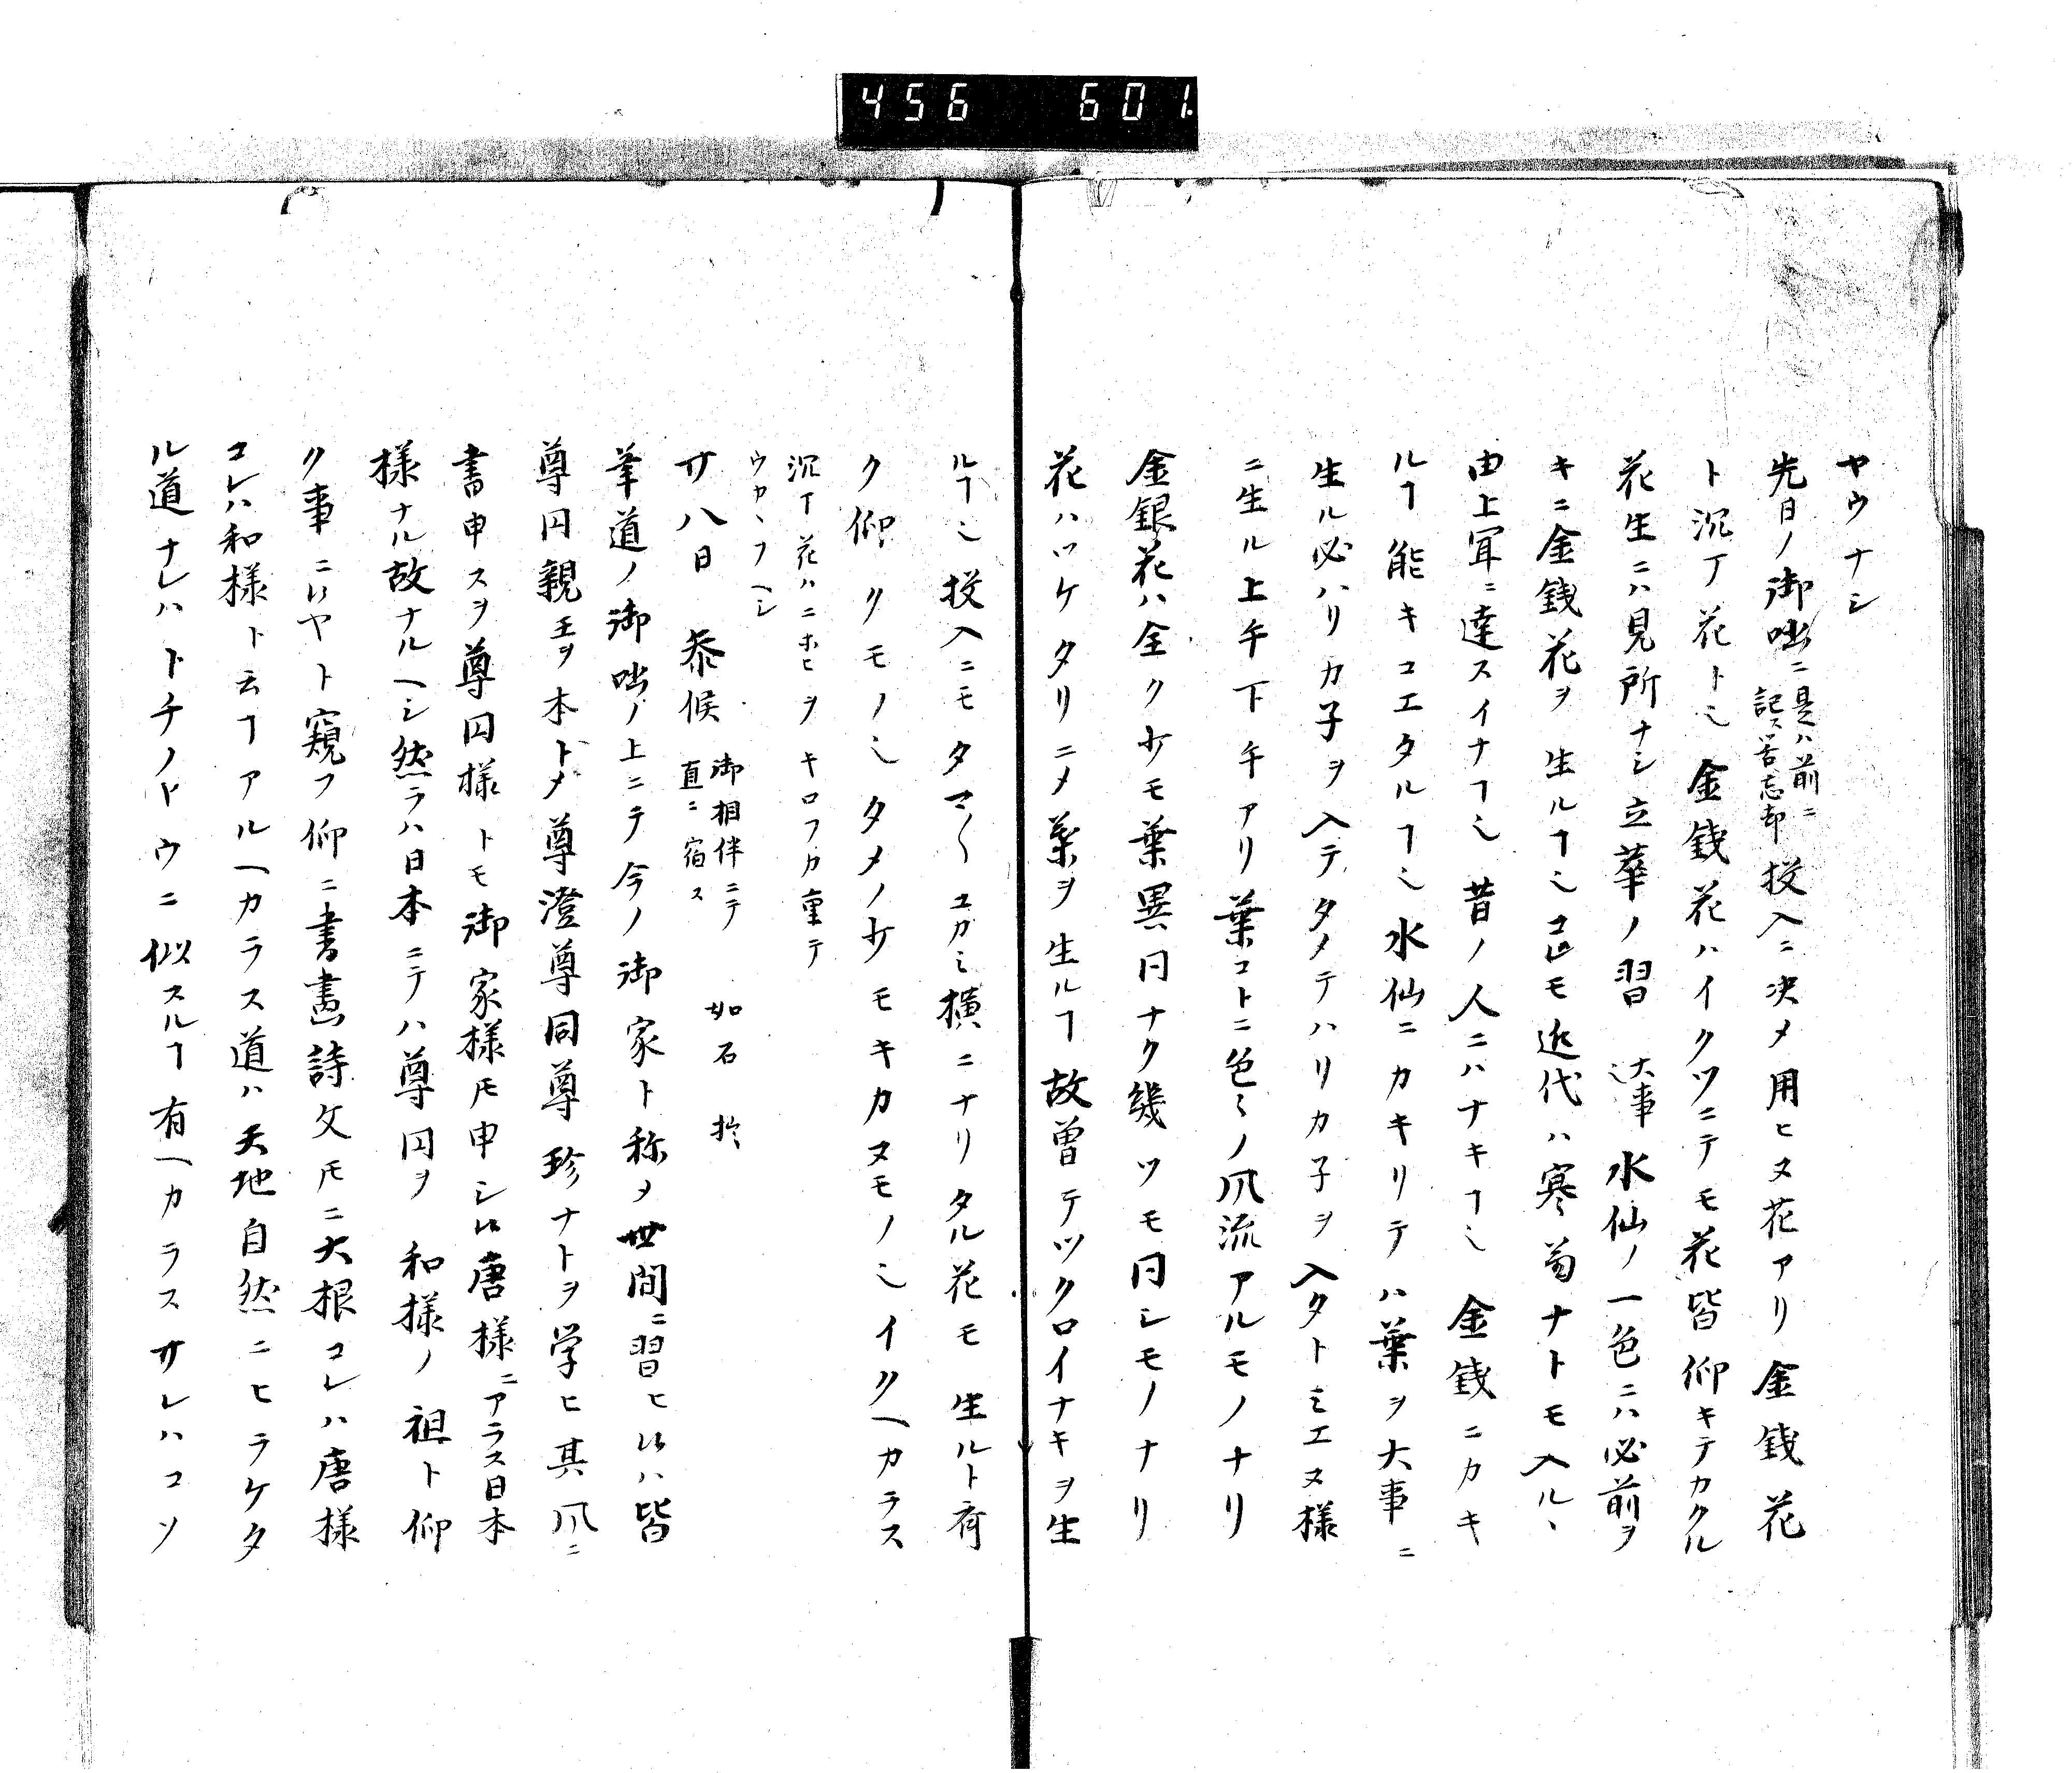 456 601.
ヤウナシ
先日ノ御咄ニ是ハ前ニ記ス筈忘却投入ニ决メ用ヒヌ花アリ金銭花
ト沉丁花トミ金銭花ハイクツニテモ花皆仰キテカクル
花生ニハ見所ナシ立華ノ習大事ミ水仙ノ一色ニハ必前ヲ
キニ金銭花ヲ生ルヿミ是モ近代ハ寒菊ナトモ入ルヽ
由上聞ニ達スイナヿミ昔ノ人ニハナキヿミ金銭ニカキ
ルヿ能キコエタルヿミ水仙ニカキリテハ葉ヲ大事ニ
生ル必ハリカ子ヲ入テタメテハリカ子ヲ入タトミエヌ様
ニ生ル上午下午アリ葉コトニ色〻ノ風流アルモノナリ
金銀花ハ全ク少モ葉異同ナク幾ツモ同シモノナリ
花ハツケタリニメ葉ヲ生ルヿ故曽テツクロイナキヲ生
ルヿミ投入ニモタマ〱ユカミ横ニナリタル花モ生ルト有
ク仰クモノミタメノ少モキカヌモノミイクヘカラス
沉丁花ハニホヒヲキロフカ重テ
ウカヽフヘシ
廿八日 參候 御相伴ニテ直ニ宿ス 如石 於
筆道ノ御咄ノ上ニテ今ノ御家ト称メ世間ニ習ヒ候ハ皆
尊円親王ヲ本トメ尊澄尊同尊珍ナトヲ学ヒ其風ニ
書申スヲ尊円様トモ御家様トモ申シ候唐様ニアラス日本
様ナル故ナルヘシ然ラハ日本ニテハ尊円ヲ和様ノ祖ト仰
ク事ニ候ヤト窺フ仰ニ書畫詩文トモニ大根コレハ唐様
コレハ和様ト云ヿアルヘカラス道ハ天地自然ニヒラケタ
ル道ナレハトチノドウニ似スルヿ有ヘカラスサレハコソ